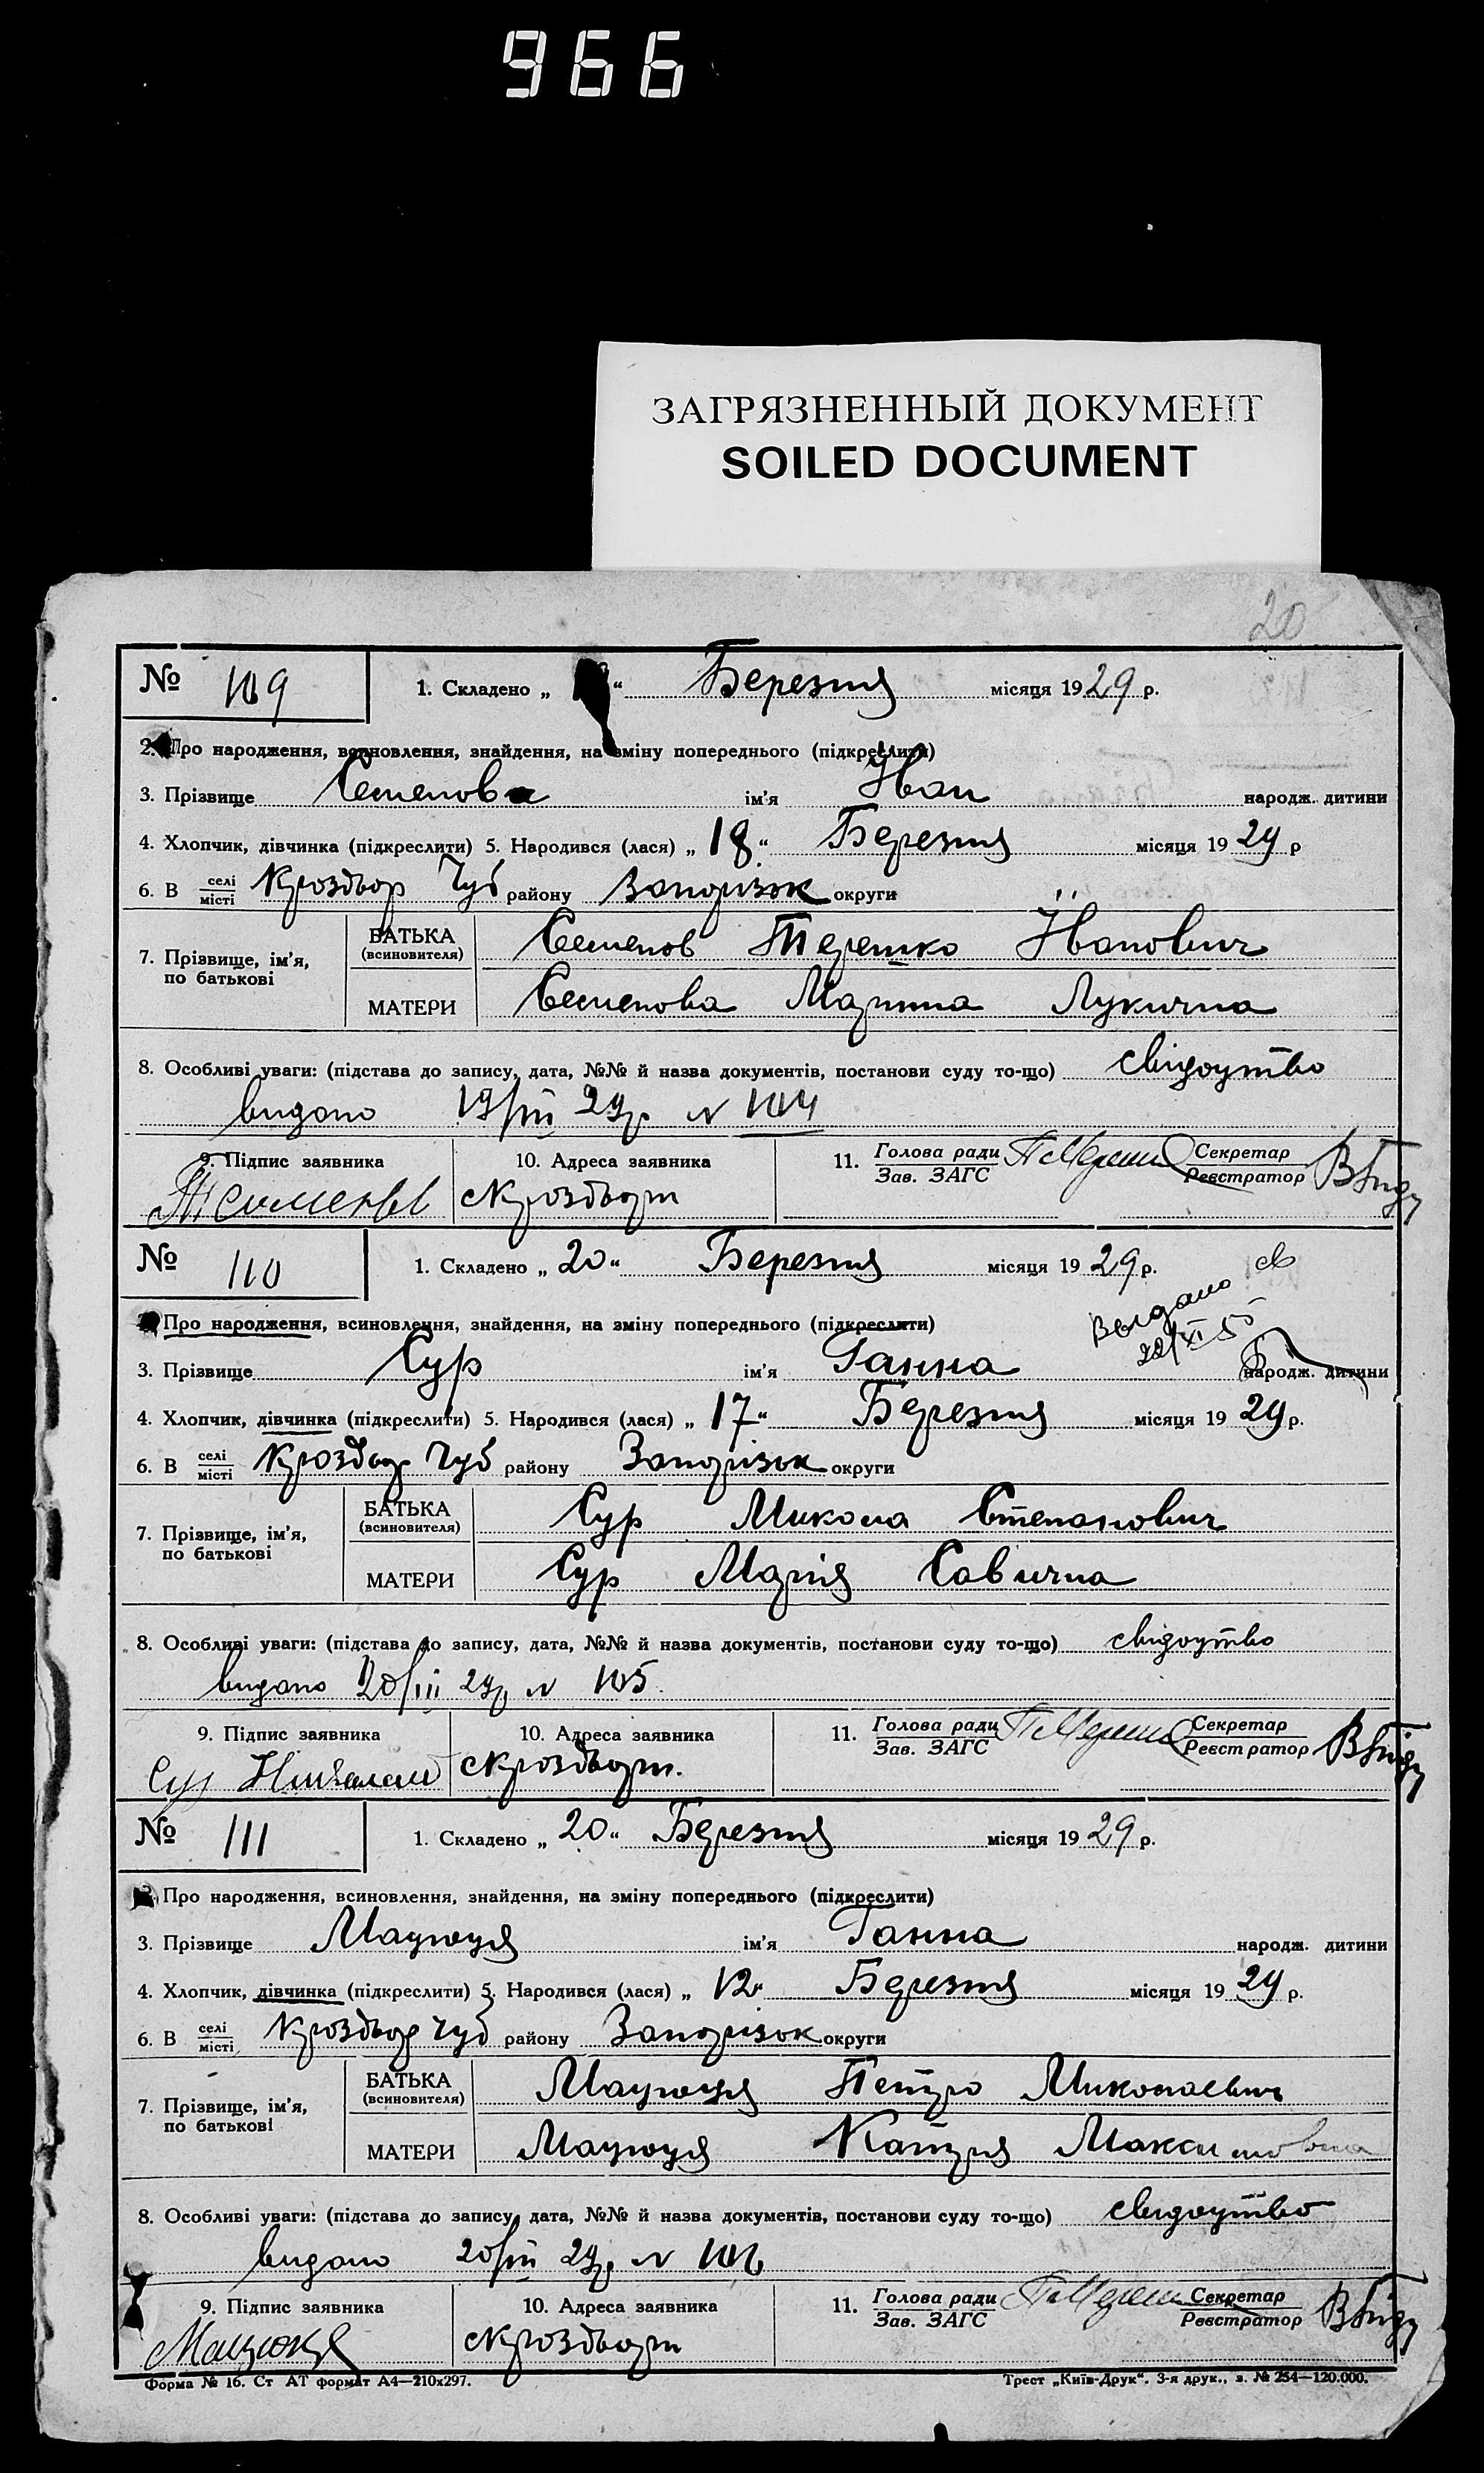 966
ЗАГРЯЗНЕННЫЙ ДОКУМЕНТ
SOILED DOCUMENT
20
№ 109 1. Складено „ “ Березня місяця 1929 р.
2. Про народження, всиновлення, знайдення, на зміну попереднього (підкреслити)
3. Прізвище Семенов ім'я Іван народж. дитини
4. Хлопчик, дівчинка (підкреслити) 5. Народився (лася) „ 18 “ Березня місяця 1929 р
6. В селі місті Чуб району Запорізьк округи
7. Прізвище, ім'я, по батькові БАТЬКА (всиновителя) Семенов Терешко Іванович
МАТЕРИ Семенова Марина Лукична
8. Особливі уваги: (підстава до запису, дата, №№ й назва документів, постанови суду то-що) свідоцтво
видано 19/III 29р. N 104
9. Підпис заявника 10. Адреса заявника 11. Голова ради Зав. ЗАГС Секретар Реєстратор
№ 110 1. Складено „ 20 “ Березня місяця 1929 р.
Про народження, всиновлення, знайдення, на зміну попереднього (підкреслити)
Выдано св
22/XI 55
3. Прізвище Сур ім'я Ганна народж. дитини
4. Хлопчик, дівчинка (підкреслити) 5. Народився (лася) „ 17 “ Березня місяця 1929 р.
6. В селі місті Чуб району Запорізьк округи
7. Прізвище, ім'я, по батькові БАТЬКА (всиновителя) Сур Микола Степанович
МАТЕРИ Сур Марія Савична
8. Особливі уваги: (підстава до запису, дата, №№ й назва документів, постанови суду то-що) свідоцтво
видано 20/III 29р. N 105.
9. Підпис заявника 10. Адреса заявника 11. Голова ради Зав. ЗАГС Секретар Реєстратор
№ 111 1. Складено „ 20 “ Березня місяця 1929 р.
Про народження, всиновлення, знайдення, на зміну попереднього (підкреслити)
3. Прізвище Мацюця ім'я Ганна народж. дитини
4. Хлопчик, дівчинка (підкреслити) 5. Народився (лася) „ 12 “ Березня місяця 1929 р.
6. В селі місті Чуб району Запорізок округи
7. Прізвище, ім'я, по батькові БАТЬКА (всиновителя) Мацюця Петро Миколаевич
МАТЕРИ Мацюця Катря Максимовна
8. Особливі уваги: (підстава до запису, дата, №№ й назва документів, постанови суду то-що) свидоцтво
видано 20/III 29р. N 106
9. Підпис заявника 10. Адреса заявника 11. Голова ради Зав. ЗАГС Секретар Реєстратор
Форма № 16. Ст АТ формат А4—210х297. Трест „Київ-Друк“. 3-я друк., з. № 254—120.000.